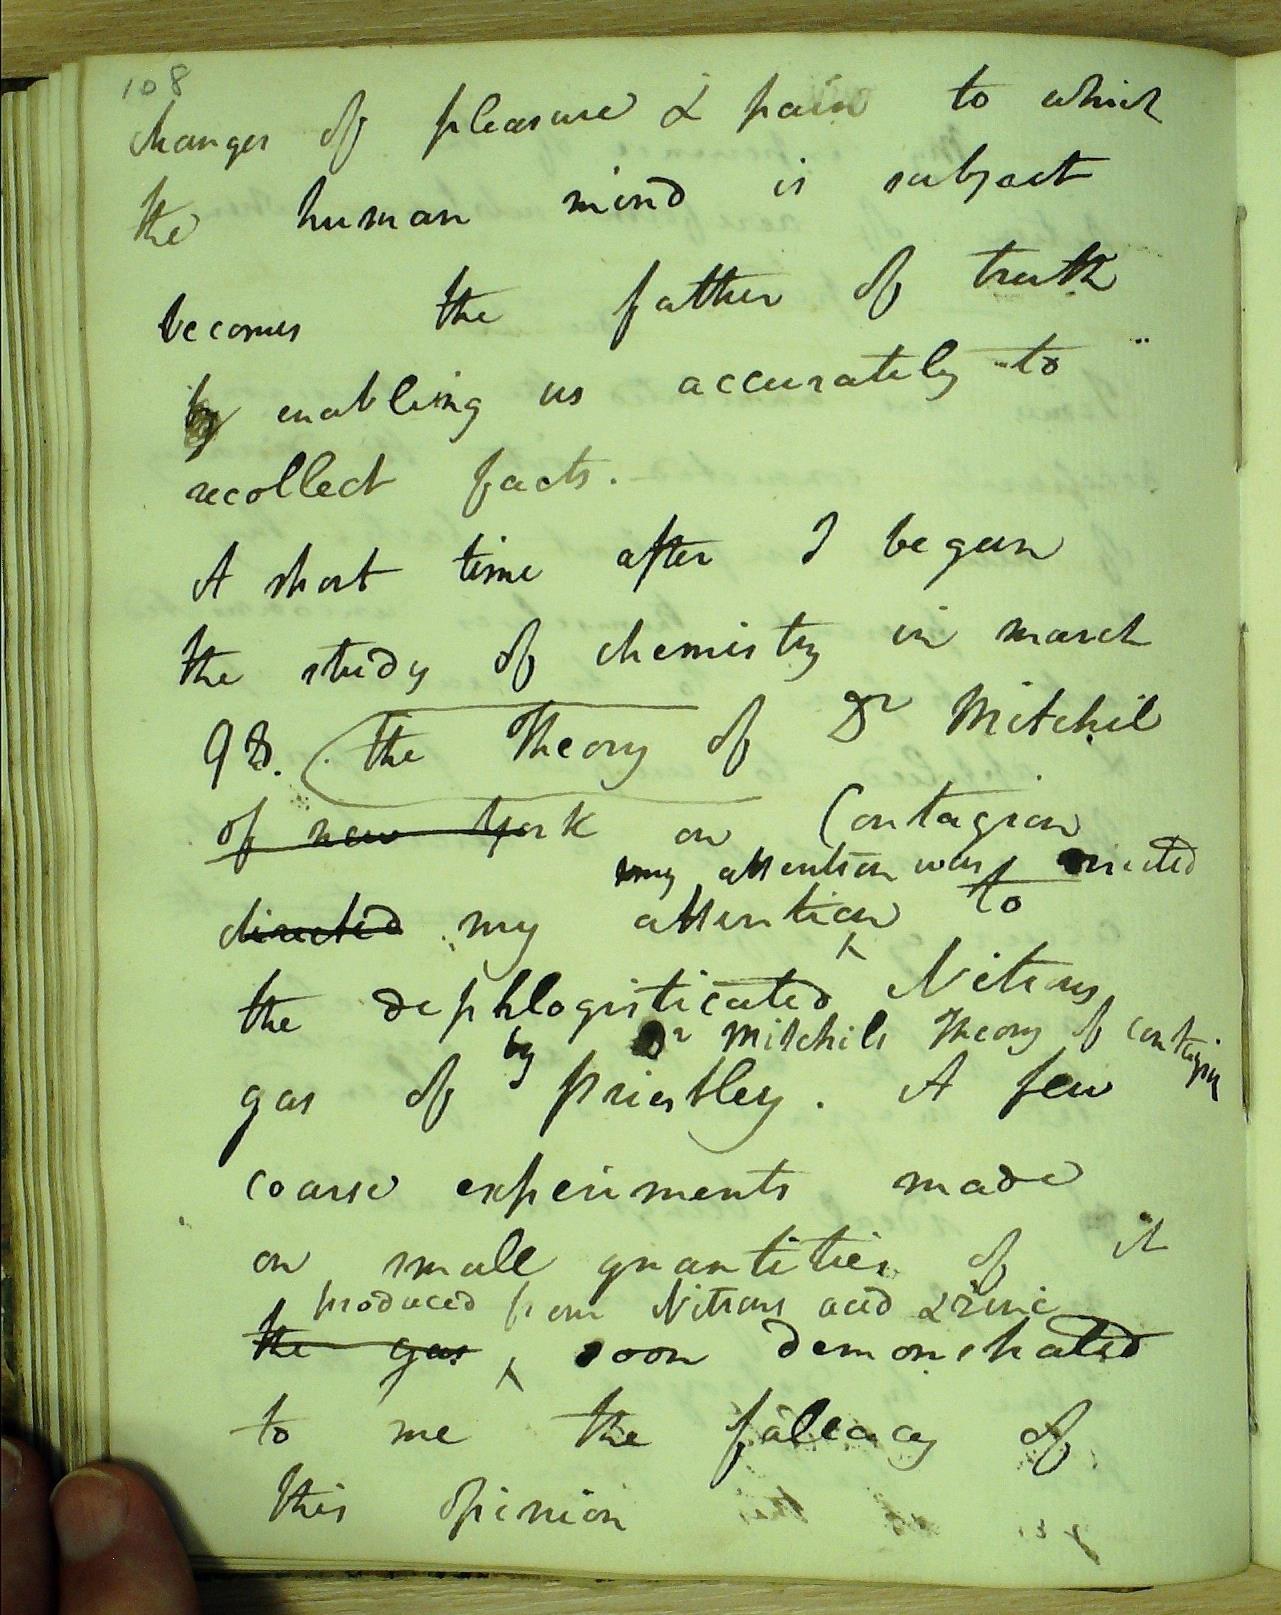 108
changes of pleasure & pain to which
the human mind is subject
becomes the father of truth
by enabling us accurately to
recollect facts.
A short time after I began
the study of chemistry in march
98. the Theory of Dr Mitchil
of new York on Contagion
my attention was directed
directed my attention to
the dephlogisticated Nitrous
by Dr Mitchils Theory of contagion
gas of Priestley. A few
coarse experiments made
on small quantities of it
produced from Nitrous acid & zinc
the gas soon demonstrated
to me the falacy of
this opinion